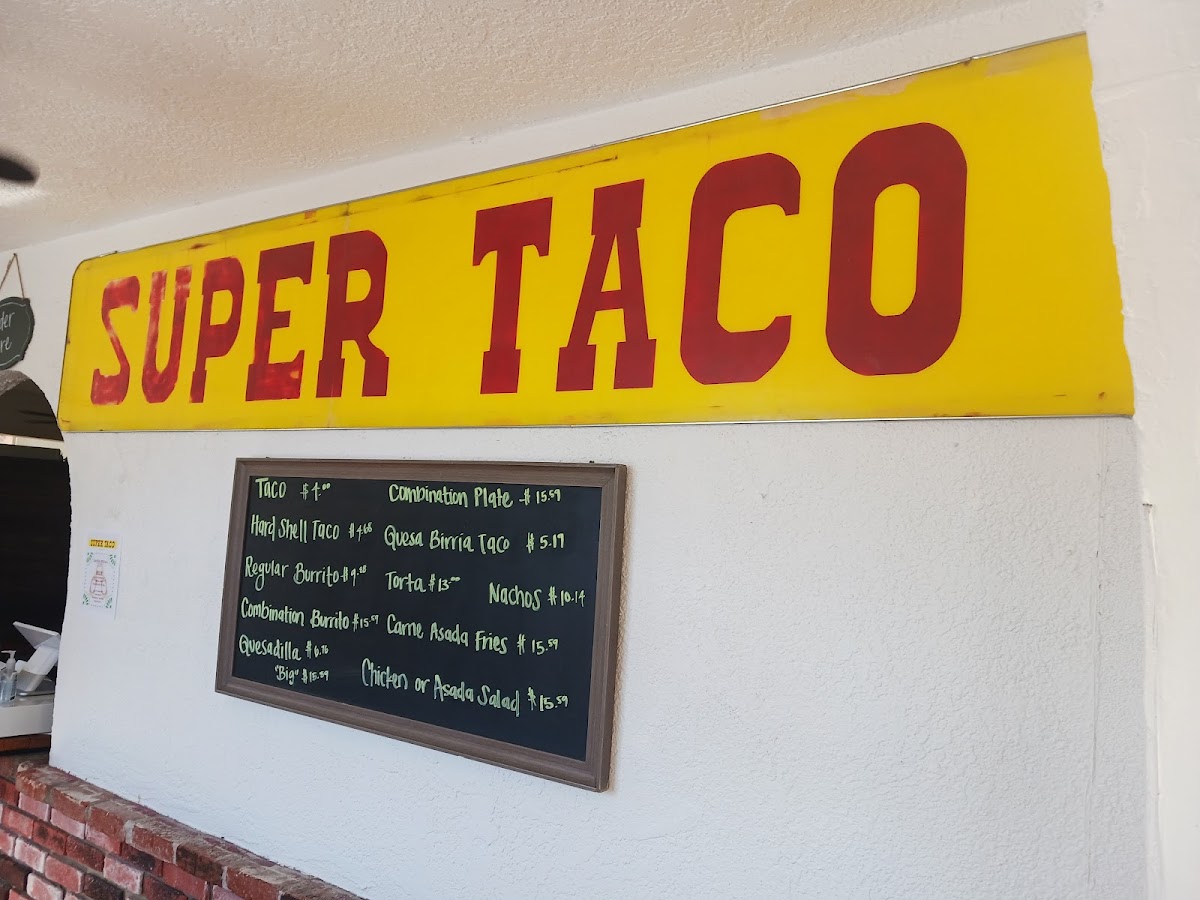 SUPER TACO
Taco $4.00
Hard Shell Taco $4.68
Regular Burrito $9.28
Combination Burrito $15.59
Quesadilla $6.76
"Big" $15.59
Combination Plate $15.59
Quesa Birria Taco $5.19
Torta $13.00
Nachos $10.14
Carne Asada Fries $15.59
Chicken or Asada Salad $15.59
SUPER TACO